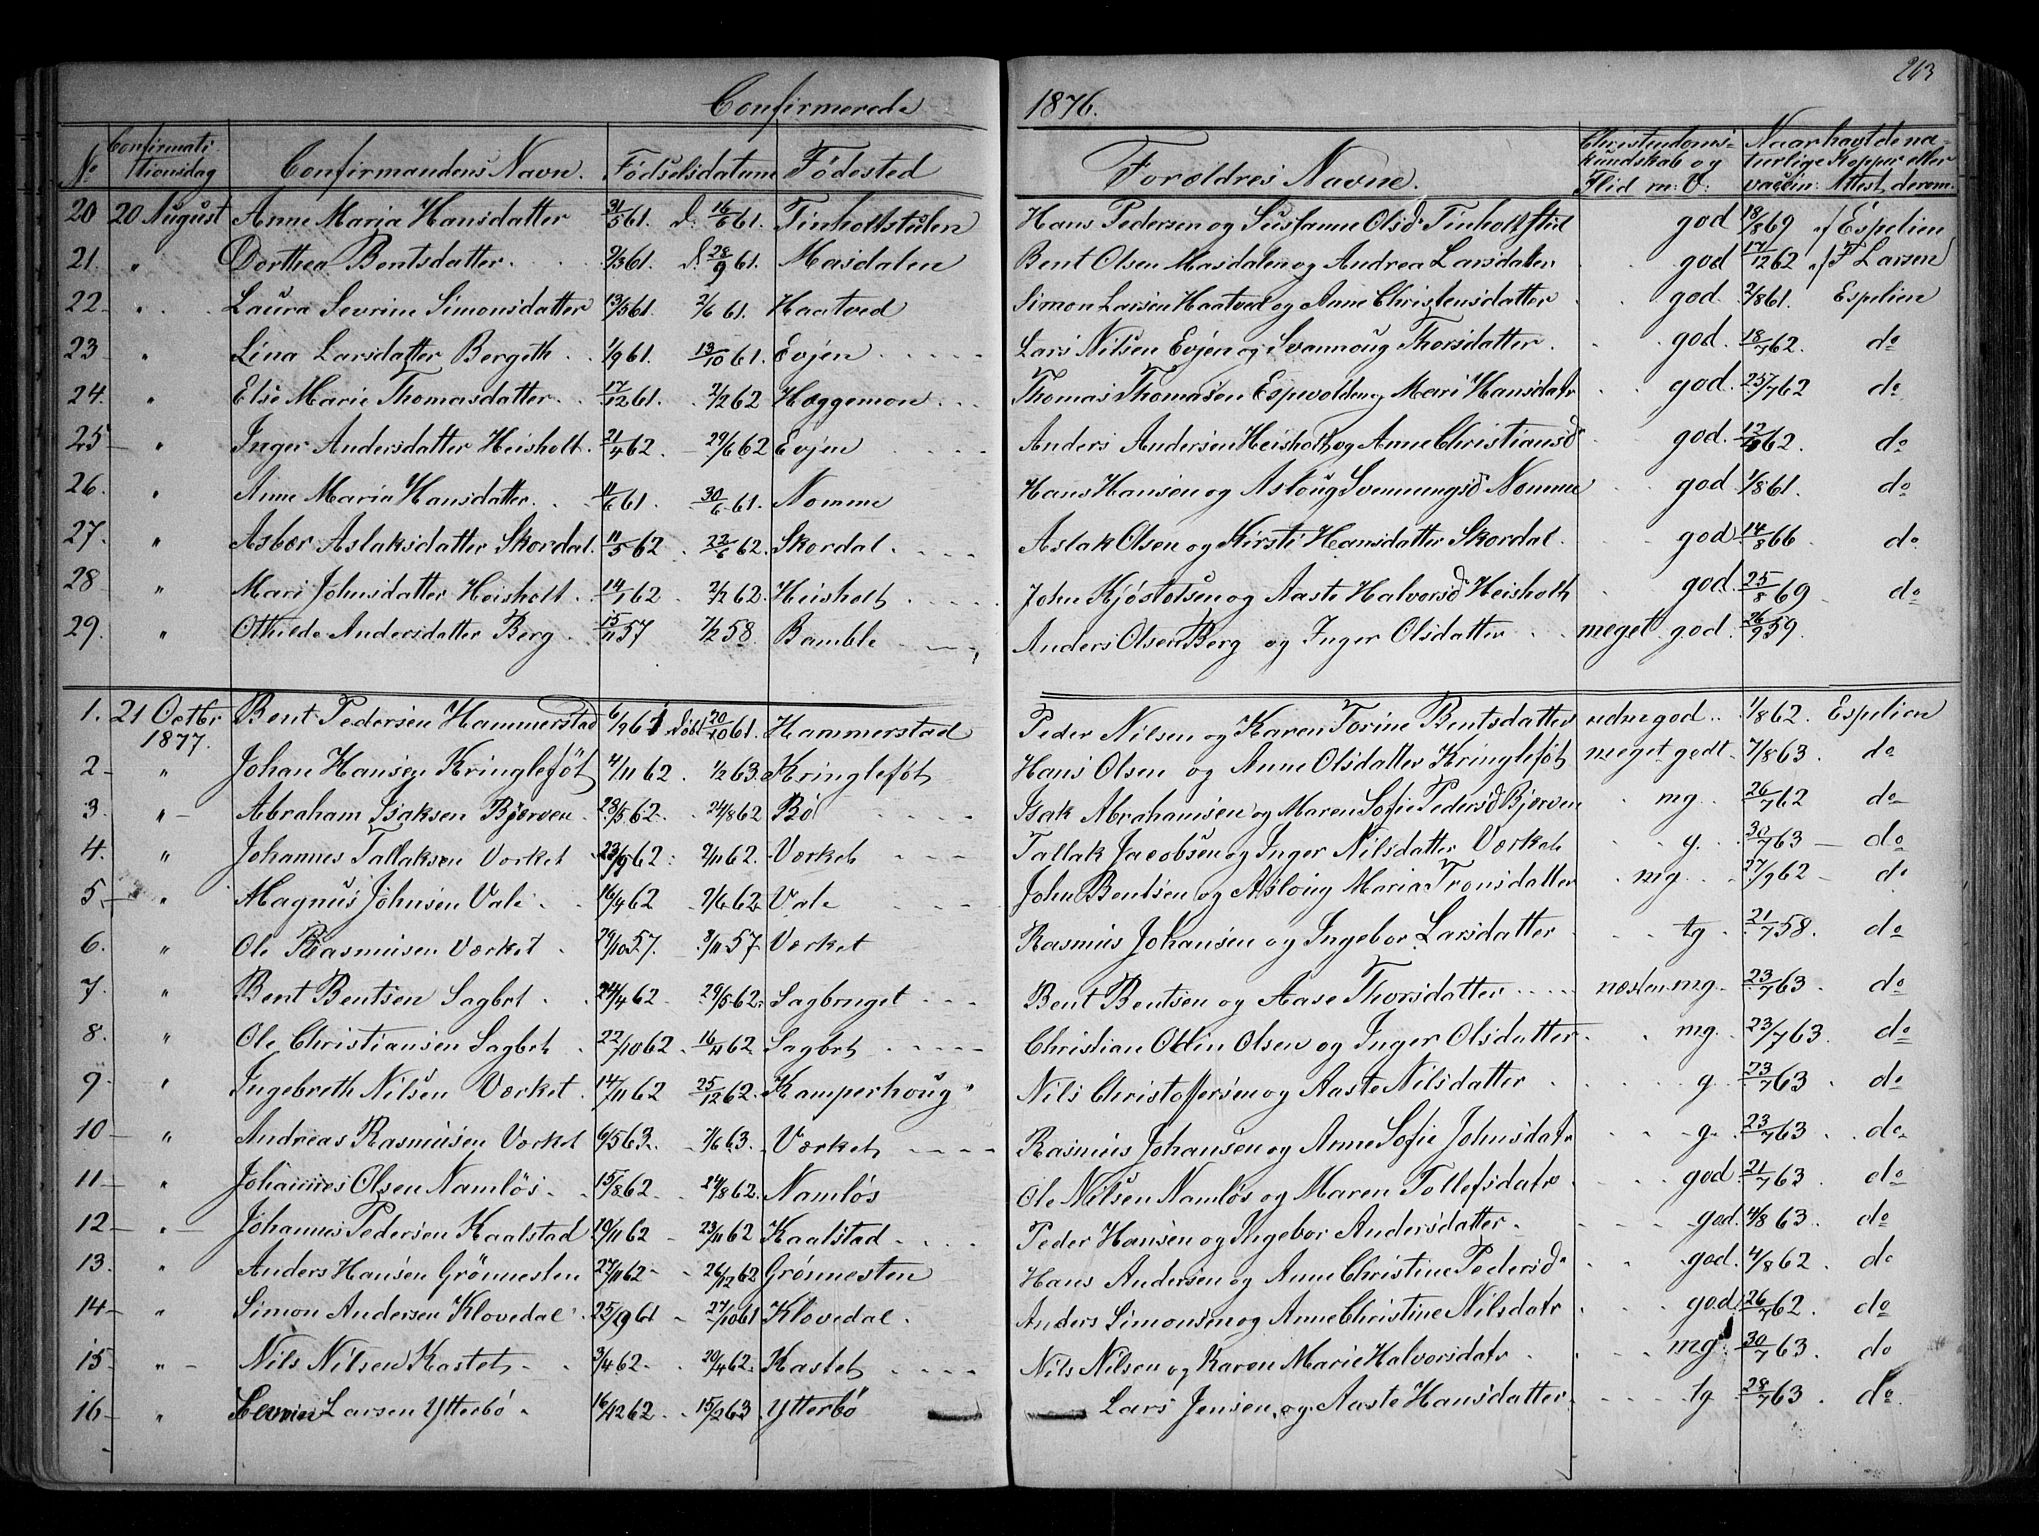 263
Confirmerede 1876.
No Confirmati tionsdag Confirmandens Navn. Fødselsdatum Fødested Forældres Navne. Christendoms- kundskab og Flid m: V: Naar havt de na- turlige Kopper eller vaccin: Attest derom.
20 20 August Anne Maria Hansdatter 31/5 61. d. 16/6 61. Tinholtstulen Hans Pedersen og Susanne Olsd Tinholtstul god 18/8 69 af Espelien
21. " Dorthea Bentsdatter. 9/3 61. d. 28/9 61. Masdalen Bent Olsen Masdalen og Andrea Larsdatter god 17/12 62 af F Larsen
22 " Laura Sevrine Simonsdatter 13/5 61. 2/6 61. Haatved Simon Larsen Haatved og Anne Christensdatter god. 2/8 61. Espelien
23 " Lina Larsdatter Bergeth. 1/9 61. 13/10 61. Evjen Lars Nilsen Evjen og Svannoug Thorsdatter. god. 18/7 62. do
24. " Else Marie Thomasdatter. 17/12 61. 2/2 62 Hæggemon Thomas Thomasen Espevolden og Mari Hansdatr god. 25/7 62 do
25 " Inger Andersdatter Heisholt. 21/4 62. 29/6 62 Evjen Anders Andersen Heisholt og Anne Christiansd god. 12/9 62. do
26. " Anne Maria Hansdatter. 11/6 61. 30/6 61. Nomme Hans Hansen og Asloug Svennungsd Nomme god 1/8 61. do
27. " Asbør Aslaksdatter Skordal. 11/5 62. 22/6 62. Skordal. Aslak Olsen og Kirsti Hansdatter Skordal. god 14/8 66 do
28 " Mari Johnsdatter Heisholt. 14/1 62 2/2 62. Heisholt John Kjøstolsen og Aaste Halvorsd Heisholt god. 25/8 69 do
29. " Othilde Andersdatter Berg. 15/11 57 7/2 58. Bamble Anders Olsen Berg og Inger Olsdatter meget god. 26/9 59.
1. 21 Octbr 1877. Bent Pedersen Hammerstad 6/9 61 døbt 20/10 61. Hammerstad Peder Nilsen og Karen Torine Bentsdatter udm god 1/8 62. Espelien
2 " Johan Hansen Kringleföt 4/11 62. 1/2 63. Kringleföt Hans Olsen og Anne Olsdatter Kringleföt meget godt 7/8 63 do
3. " Abraham Isaksen Bjørven. 28/5 62. 24/8 62 Bö Isak Abrahamsen og Maren Sofie Pedersd Bjørven mg 26/7 62 do
4. " Johannes Tallaksen Værket 23/9 62. 2/11 62. Værket Tallak Jacobsen og Inger Nilsdatter Værket g. 30/7 63 do
5 " Magnus Johnsen Vale 16/4 62 9/6 62 Vale John Bentsen og Asloug Maria Tronsdatter mg 27/9 62 do
6. " Ole Rasmusen Værket 29/10 57. 8/11 57 Værket Rasmus Johansen og Ingebor Larsdatter tg 21/7 58. do
7. " Bent Bentsen Sagbrt 24/4 62 29/5 62. Sagbruget Bent Bentsen og Aase Thorsdatter næsten mg. 23/7 63. do
8. " Ole Christiansen Sagbrt 22/10 62 16/11 62 Sagbrt Christian Odin Olsen og Inger Olsdatter mg. 23/7 63. do
9. " Ingebreth Nilsen Værket. 14/11 62 25/12 62. Kamperhoug Nils Christoffersen og Aaste Nilsdatter g. 23/7 63. do
10 " Andreas Rasmusen Værket 6/5 63. 7/6 63. Værket Rasmus Johansen og Anne Sofie Johnsdatr g. 23/7 63. do
11 " Johannes Olsen Namlös. 15/8 62 24/8 62. Namlös Ole Nilsen Namlös og Maren Tollefsdatr god 21/7 63. do
12 " Johannes Pedersen Kaalstad 19/11 62 23/11 62 Kaalstad Peder Hansen og Ingebor Andersdatter god. 4/8 63. do
13. " Anders Hansen Grönnesten 27/11 62 26/12 62 Grönnesten Hans Andersen og Anne Christine Pedersd god. 4/8 62 do
14 " Simon Andersen Klovedal 25/9 61 27/10 61 Klovedal. Anders Simonsen og Anne Christine Nilsdatr god 26/7 62. do
15 " Nils Nilsen Kastet 3/4 62. 20/4 62. Kastet Nils Nilsen og Karen Marie Halvorsdatr mg. 30/7 63. do
16 " Larsen Ytterbö 16/12 62 15/2 63 Ytterbö Lars Jensen og Aaste Hansdatter tg 28/7 63. do